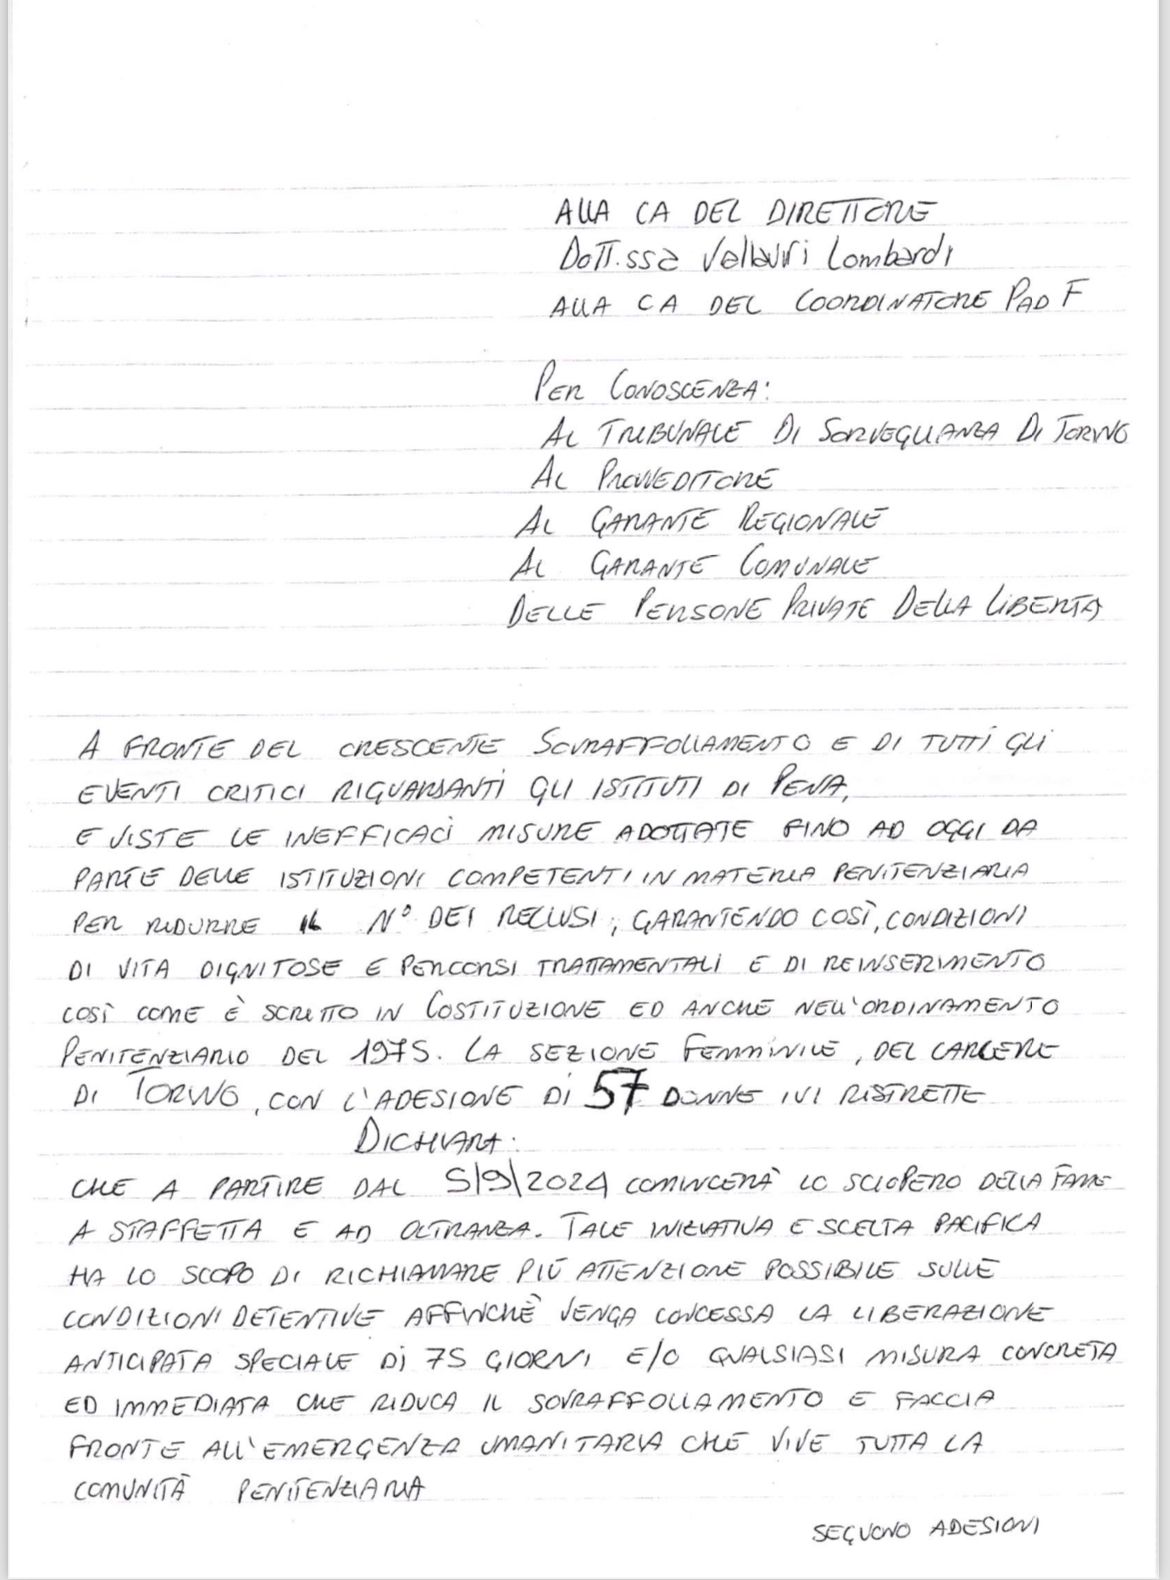 ALLA CA DEL DIRETTORE
Dott.ssa Vallauri Lombardi
ALLA CA DEL COORDINATORE PAD F
PER CONOSCENZA:
AL TRIBUNALE DI SORVEGLIANZA DI TORINO
AL PROVVEDITORE
AL GARANTE REGIONALE
AL GARANTE COMUNALE
DELLE PERSONE PRIVATE DELLA LIBERTÀ
A FRONTE DEL CRESCENTE SOVRAFFOLLAMENTO E DI TUTTI GLI
EVENTI CRITICI RIGUARDANTI GLI ISTITUTI DI PENA,
E VISTE LE INEFFICACI MISURE ADOTTATE FINO AD OGGI DA
PARTE DELLE ISTITUZIONI COMPETENTI IN MATERIA PENITENZIARIA
PER RIDURRE IL N° DEI RECLUSI, GARANTENDO COSÌ, CONDIZIONI
DI VITA DIGNITOSE E PERCORSI TRATTAMENTALI E DI REINSERIMENTO
COSÌ COME È SCRITTO IN COSTITUZIONE ED ANCHE NELL'ORDINAMENTO
PENITENZIARIO DEL 1975. LA SEZIONE FEMMINILE, DEL CARCERE
DI TORINO, CON L'ADESIONE DI 57 DONNE IVI RISTRETTE
DICHIARA:
CHE A PARTIRE DAL 5/9/2024 COMINCERÀ LO SCIOPERO DELLA FAME
A STAFFETTA E AD OLTRANZA. TALE INIZIATIVA E SCELTA PACIFICA
HA LO SCOPO DI RICHIAMARE PIÙ ATTENZIONE POSSIBILE SULLE
CONDIZIONI DETENTIVE AFFINCHÈ VENGA CONCESSA LA LIBERAZIONE
ANTICIPATA SPECIALE DI 75 GIORNI E/O QUALSIASI MISURA CONCRETA
ED IMMEDIATA CHE RIDUCA IL SOVRAFFOLLAMENTO E FACCIA
FRONTE ALL'EMERGENZA UMANITARIA CHE VIVE TUTTA LA
COMUNITÀ PENITENZIARIA
SEGUONO ADESIONI